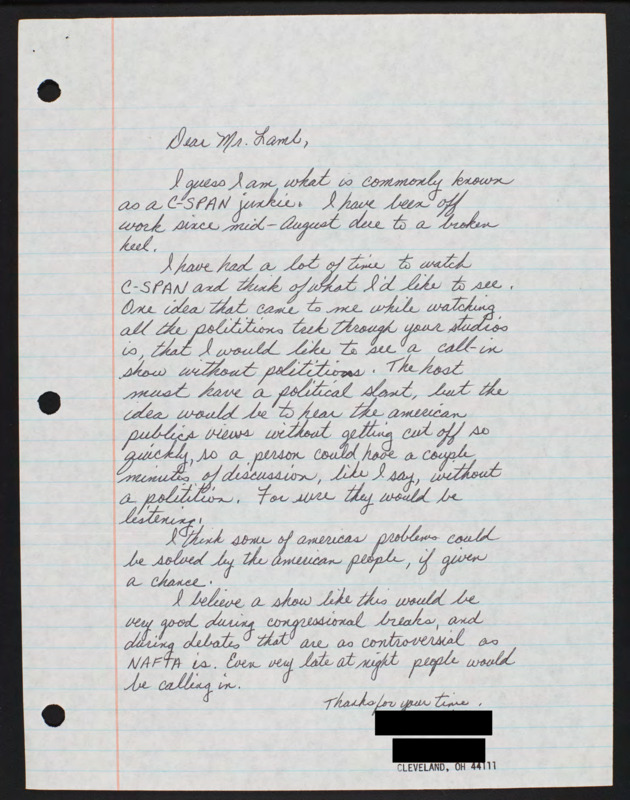 Dear Mr. Lamb,
I guess I am what is commonly known
as a C-SPAN junkie. I have been off
work since mid-August due to a broken
heel.
I have had a lot of time to watch
C-SPAN and think of what I'd like to see.
One idea that came to me while watching
all the polititions trek through your studios
is, that I would like to see a call-in
show without polititions. The host
must have a political slant, but the
idea would be to hear the american
publics views without getting cut off so
quickly, so a person could have a couple
minutes of discussion, like I say, without
a polition. For sure they would be
listening.
I think some of americas problems could
be solved by the american people, if given
a chance.
I believe a show like this would be
very good during congressional breaks, and
during debates that are as controversial as
NAFTA is. Even very late at night people would
be calling in.
Thanks for your time.
CLEVELAND, OH 44111